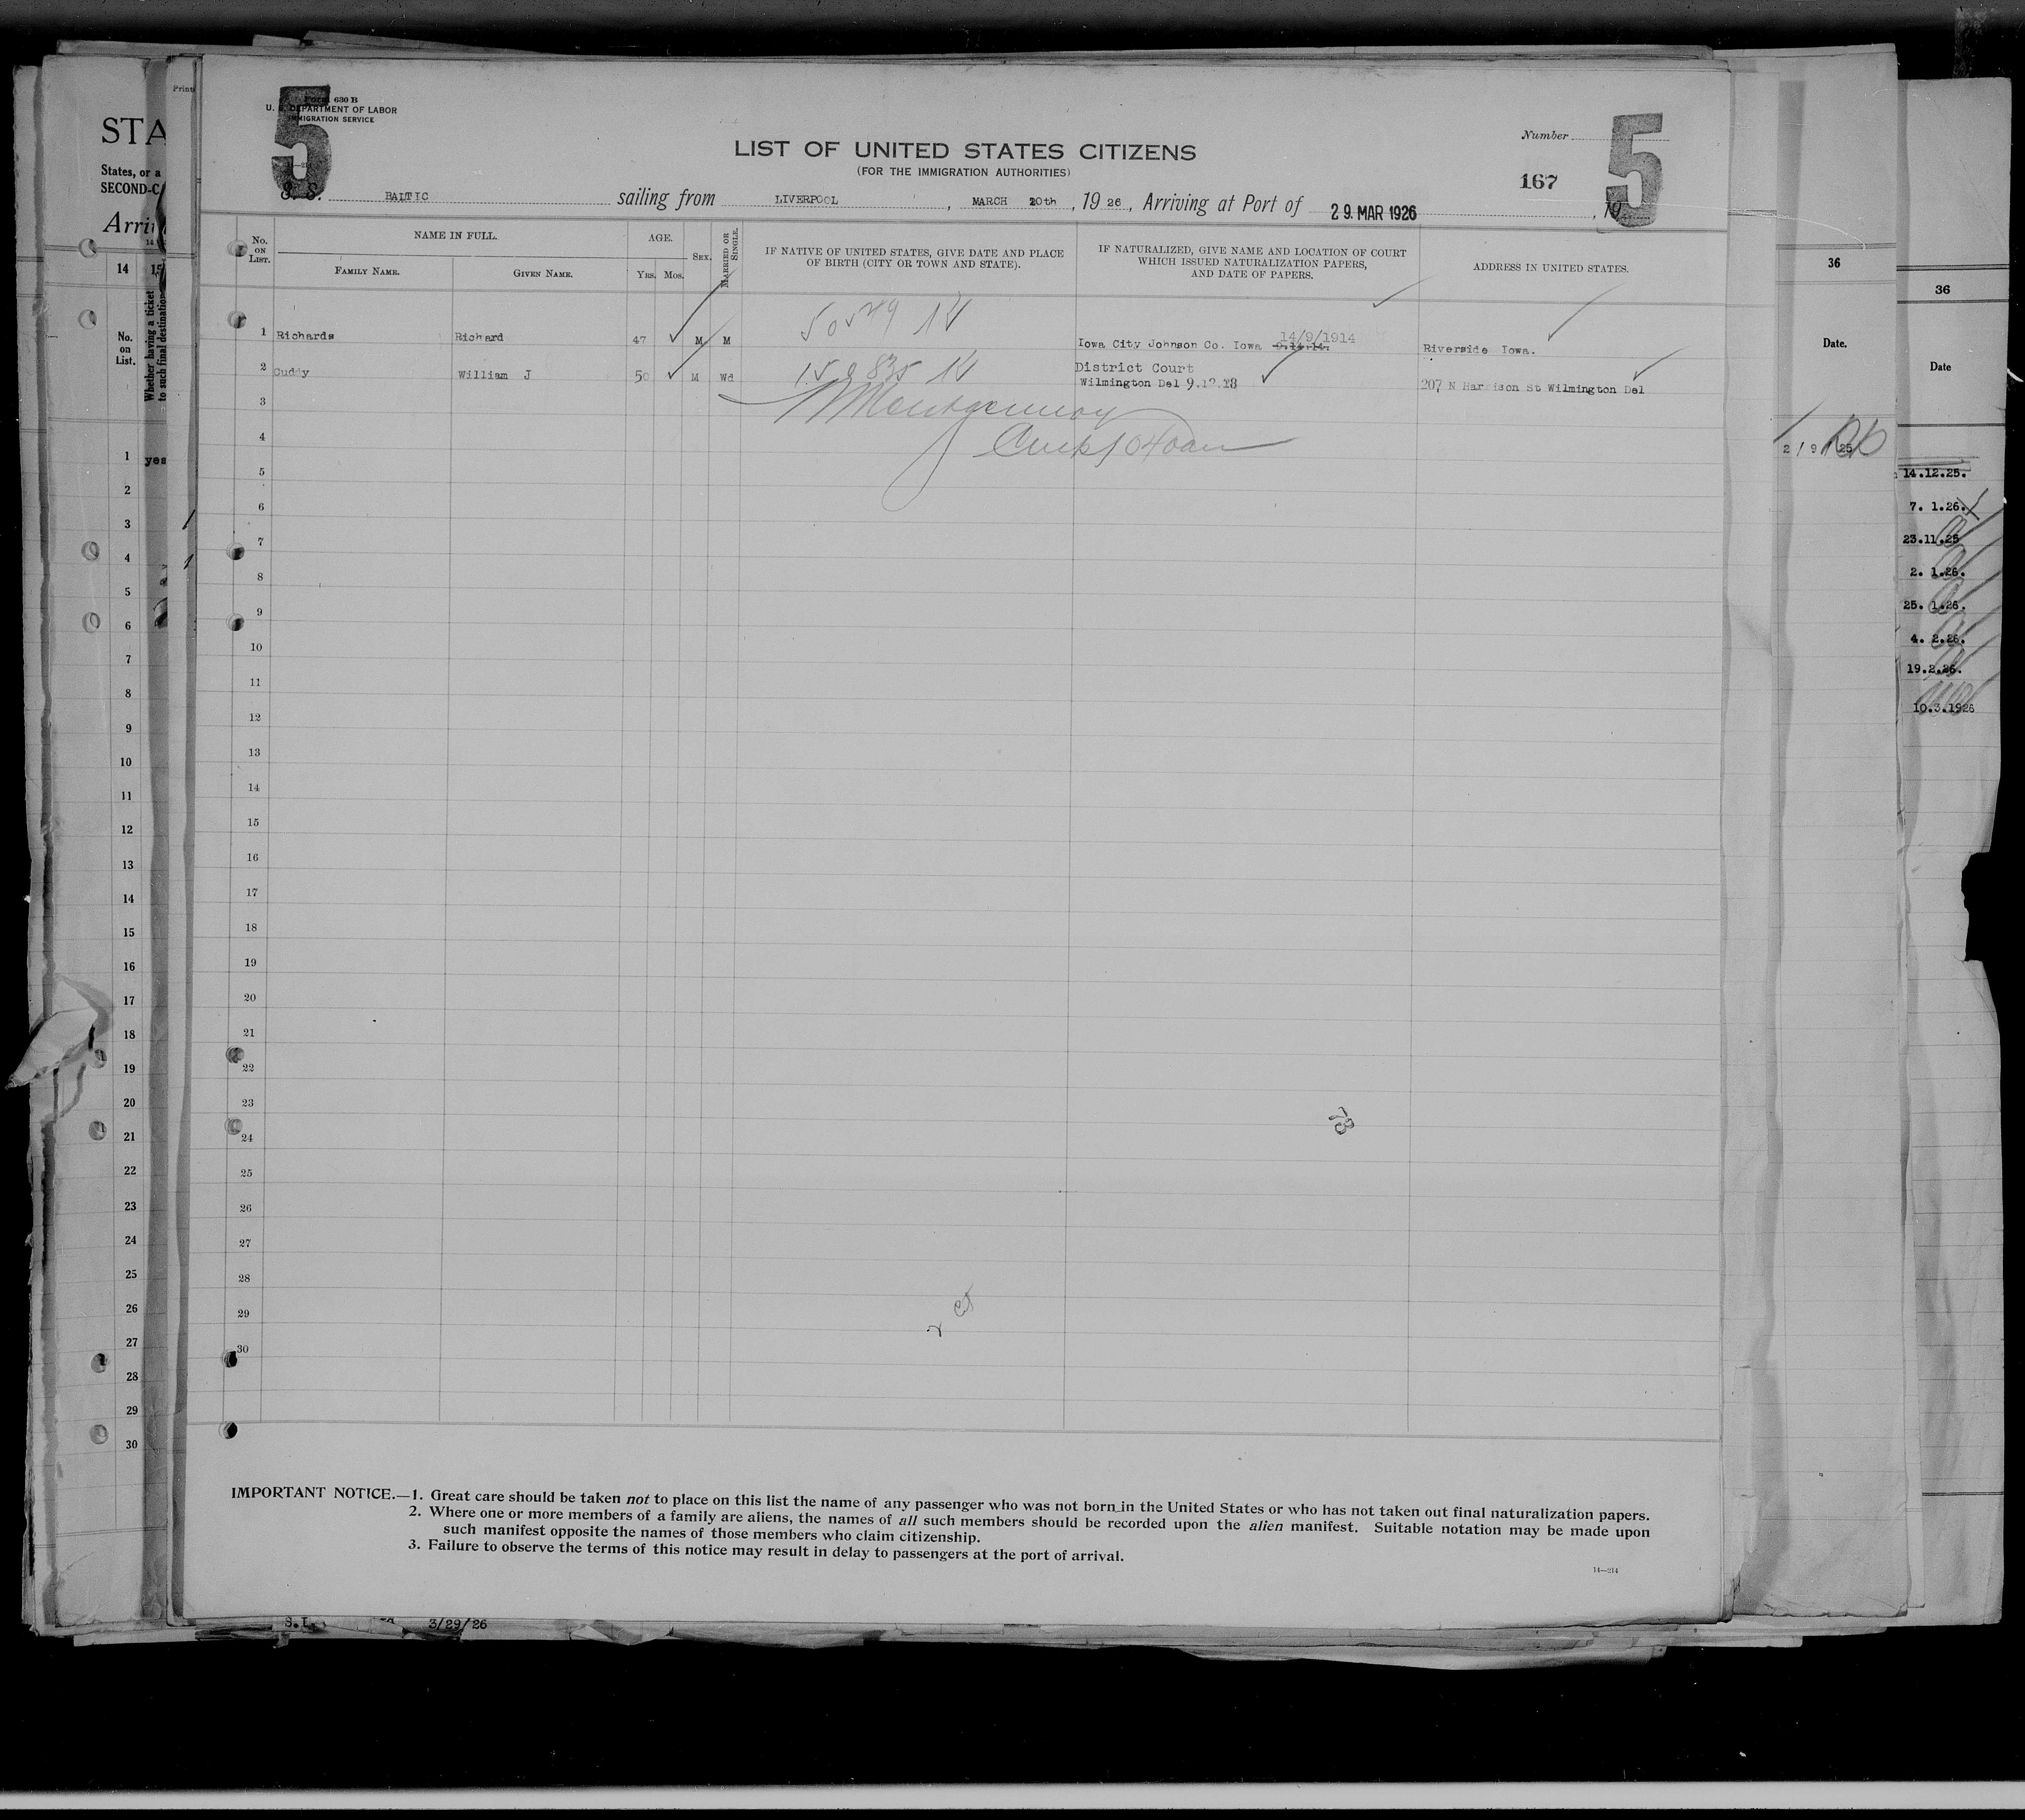 Form 630 B
U. S. DEPARTMENT OF LABOR
IMMIGRATION SERVICE
5
5
Number
167
LIST OF UNITED STATES CITIZENS
(FOR THE IMMIGRATION AUTHORITIES)
S. S. BALTIC sailing from LIVERPOOL, MARCH 20th, 1926, Arriving at Port of 29. MAR 1926, 19
No. on List.
NAME IN FULL.
Family Name.
Given Name.
AGE.
Yrs. Mos.
Sex.
Married or Single.
IF NATIVE OF UNITED STATES, GIVE DATE AND PLACE
OF BIRTH (CITY OR TOWN AND STATE).
IF NATURALIZED, GIVE NAME AND LOCATION OF COURT
WHICH ISSUED NATURALIZATION PAPERS,
AND DATE OF PAPERS.
ADDRESS IN UNITED STATES.
14/9/1914
1 Richards Richard 47 M M Iowa City Johnson Co. Iowa 9.14.14. Riverside Iowa.
District Court
2 Cuddy William J 50 M Wd Wilmington Del 9.12.18 207 N Harrison St Wilmington Del
3 Montgomery
4
5
6
7
8
9
10
11
12
13
14
15
16
17
18
19
20
21
22
23
24
25
26
27
28
29
30
IMPORTANT NOTICE.—1. Great care should be taken not to place on this list the name of any passenger who was not born in the United States or who has not taken out final naturalization papers.
2. Where one or more members of a family are aliens, the names of all such members should be recorded upon the alien manifest. Suitable notation may be made upon
such manifest opposite the names of those members who claim citizenship.
3. Failure to observe the terms of this notice may result in delay to passengers at the port of arrival.
14—214
3/29/26
STA
States, or a
SECOND-C
Arri
14 15
No. on List.
Whether having a ticket
to such final destination
1 yes
2
3
4
5
6
7
8
9
10
11
12
13
14
15
16
17
18
19
20
21
22
23
24
25
26
27
28
29
30
Print
36
Date.
36
Date
14.12.25.
7. 1.26.
23.11.25
2. 1.26.
25. 1.26.
4. 2.26.
19.2.26.
10.3.1926